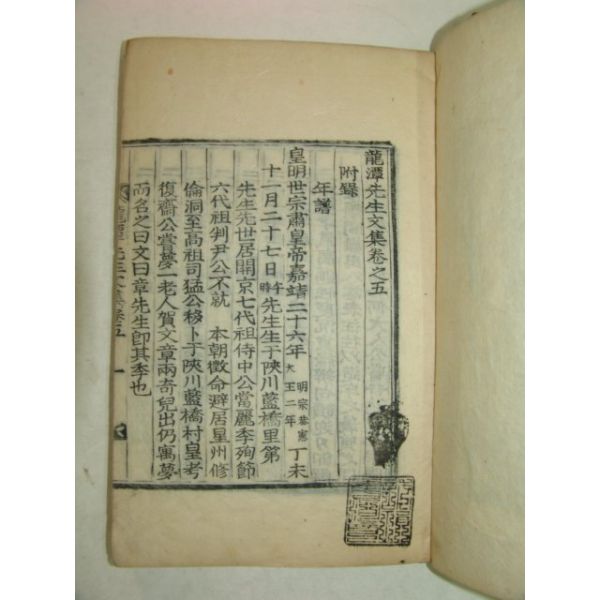 龍潭先生文集卷之五
附錄
年譜
皇明世宗肅皇帝嘉靖二十六年 明宗恭憲大王二年 丁未
十一月二十七日午時先生生于陜川藍橋里第
先生先世居開京七代祖侍中公當麗季殉節
六代祖判尹公不就 本朝徵命避居星州修
倫洞至高祖司猛公移卜于陜川藍橋村皇考
復齋公嘗夢一老人賀文章兩奇兒出仍寓夢
而名之曰文曰章先生卽其季也
龍潭先生文集卷五
一